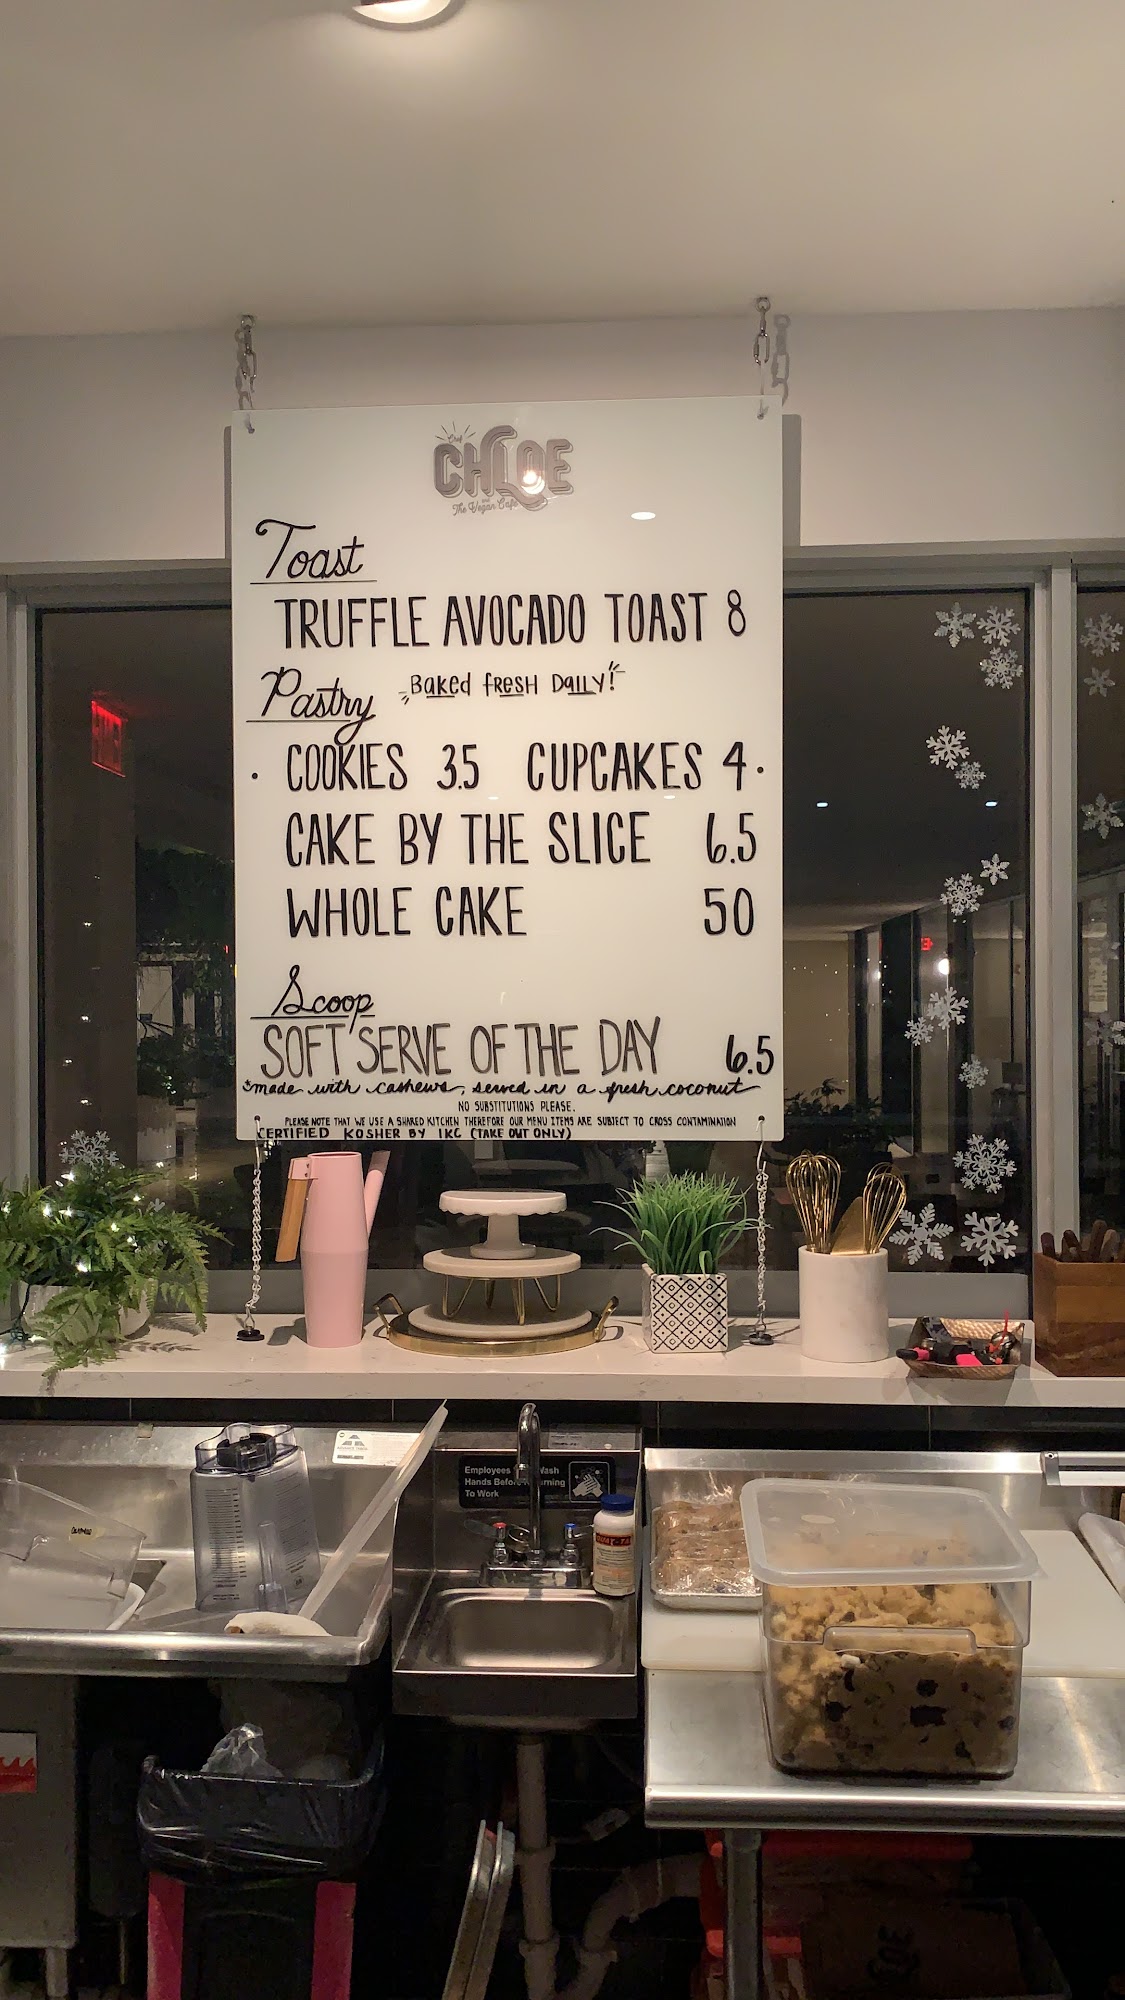 Chef
CHLOE
and
The Vegan Cafe
Toast
TRUFFLE AVOCADO TOAST 8
Pastry Baked fresh Daily!
· COOKIES 3.5 CUPCAKES 4 ·
CAKE BY THE SLICE 6.5
WHOLE CAKE 50
Scoop
SOFT SERVE OF THE DAY 6.5
*made with cashews, served in a fresh coconut
NO SUBSTITUTIONS PLEASE.
PLEASE NOTE THAT WE USE A SHARED KITCHEN THEREFORE OUR MENU ITEMS ARE SUBJECT TO CROSS CONTAMINATION
CERTIFIED KOSHER BY IKC (TAKE OUT ONLY)
Employees Wash
Hands Before
To Work